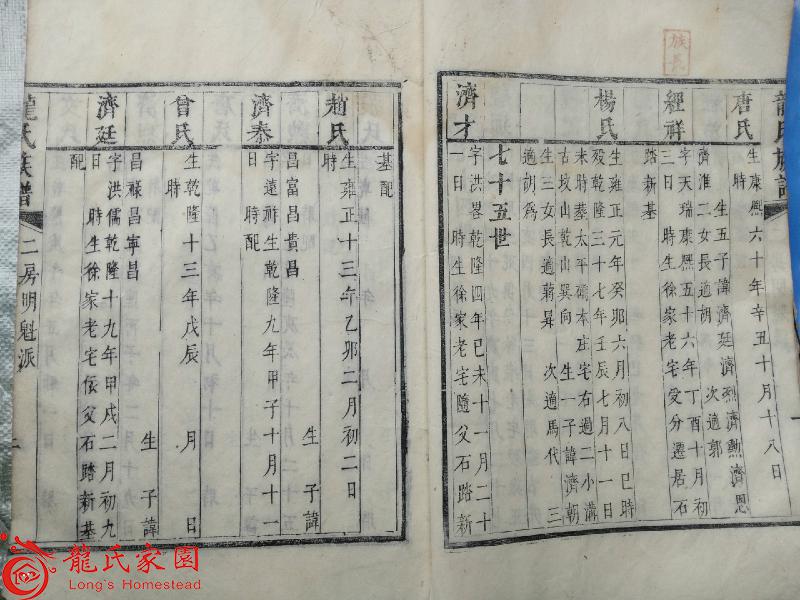 族長
龍氏族譜
唐氏
生康熈六十年辛丑十月十八日
時
生五子諱濟廷濟烈濟勲濟恩
濟淮二女長適胡
次適郭
經祥
字天瑞康熈五十六年丁酉十月初
三日
時生徐家老宅受分遷居石
踏新基
楊氏
生雍正元年癸卯六月初八日巳時
殁乾隆三十七年壬辰七月十一日
未時葬太平橋本庄宅右過二小溝
古坟山乾山巽向
生一子諱濟朝
生三女長適蔣昇
次適馬代
三
適胡爲
七十五世
濟才
字洪畧乾隆四年己未十一月二十
一日
時生徐家老宅隨父石踏新
基配
趙氏
生雍正十三年乙卯二月初二日
時
生子諱
昌富昌貴昌
濟泰
字遠祚生乾隆九年甲子十月十一
日
時配
曾氏
生乾隆十三年戊辰
月
日
時
生子諱
昌祿昌寧昌
濟廷
字洪儒乾隆十九年甲戌二月初九
日
時生徐家老宅伝父石踏新基
配
龍氏族譜
二房明魁派
二
龍氏家園
Long's Homestead